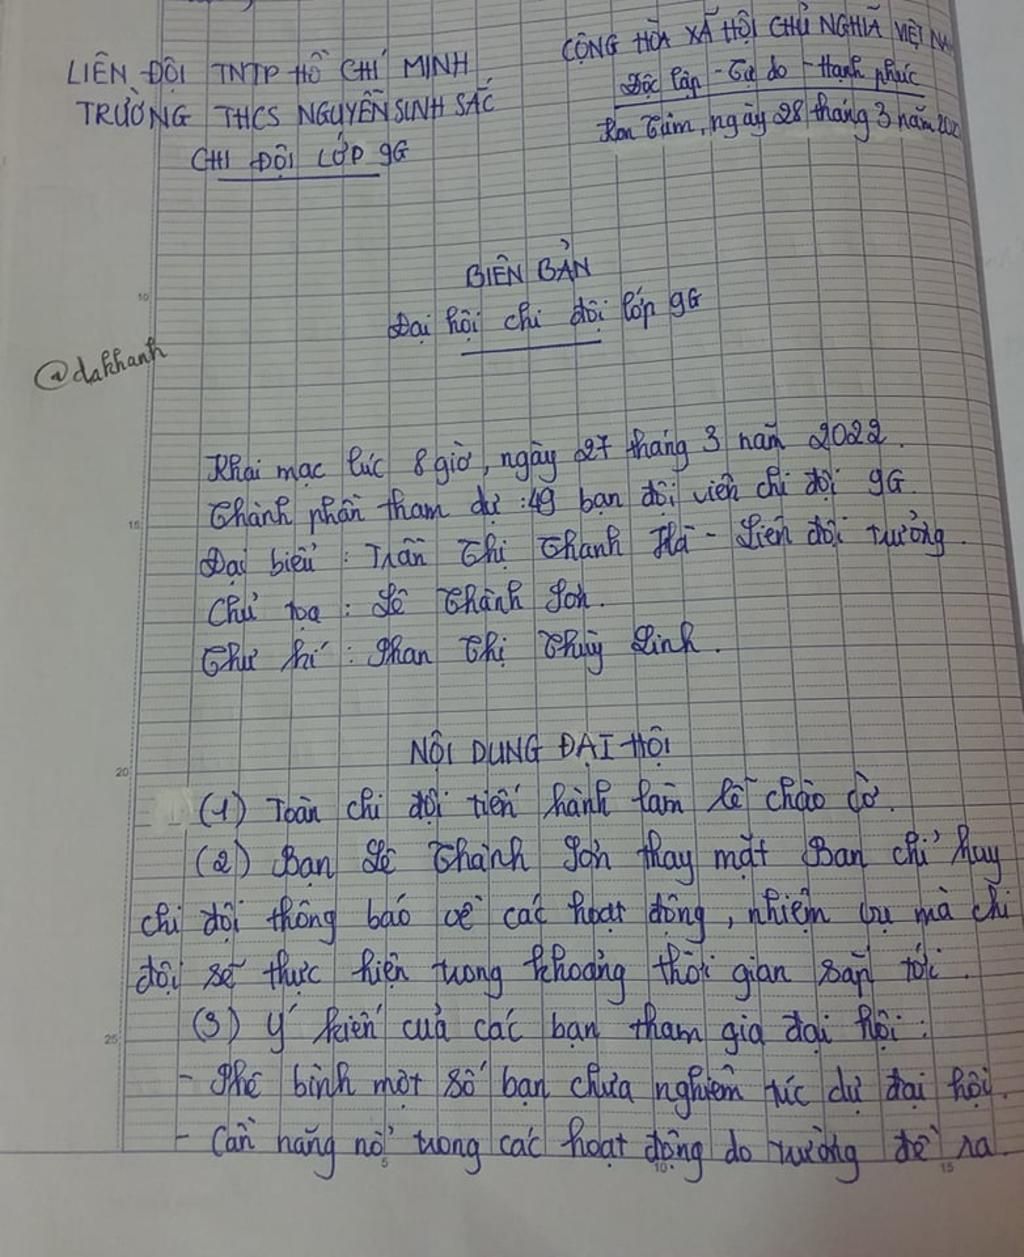 LIÊN ĐỘI TNTP HỒ CHÍ MINH
TRƯỜNG THCS NGUYỄN SINH SẮC
CHI ĐỘI LỚP 9G
CỘNG HÒA XÃ HỘI CHỦ NGHĨA VIỆT NA
Độc lập - Tự do - Hạnh phúc
Kon Tum, ngày 28 tháng 3 năm 202
BIÊN BẢN
Đại hội chi đội lớp 9G
@dakhanh
Khai mạc lúc 8 giờ, ngày 27 tháng 3 năm 2022.
Thành phần tham dự : 49 bạn đội viên chi đội 9G.
Đại biểu : Trần Thị Thanh Hà - Liên đội trưởng.
Chủ tọa : Lê Thành Sơn.
Thư kí : Phan Thị Thùy Linh.
NỘI DUNG ĐẠI HỘI
(1) Toàn chi đội tiến hành làm lễ chào cờ.
(2) Bạn Lê Thành Sơn thay mặt Ban chỉ huy
chi đội thông báo về các hoạt động, nhiệm vụ mà chi
đội sẽ thực hiện trong khoảng thời gian sắp tới.
(3) Ý kiến của các bạn tham gia đại hội :
- Phê bình một số bạn chưa nghiêm túc dự đại hội.
- Cần năng nổ trong các hoạt động do trường đề ra.